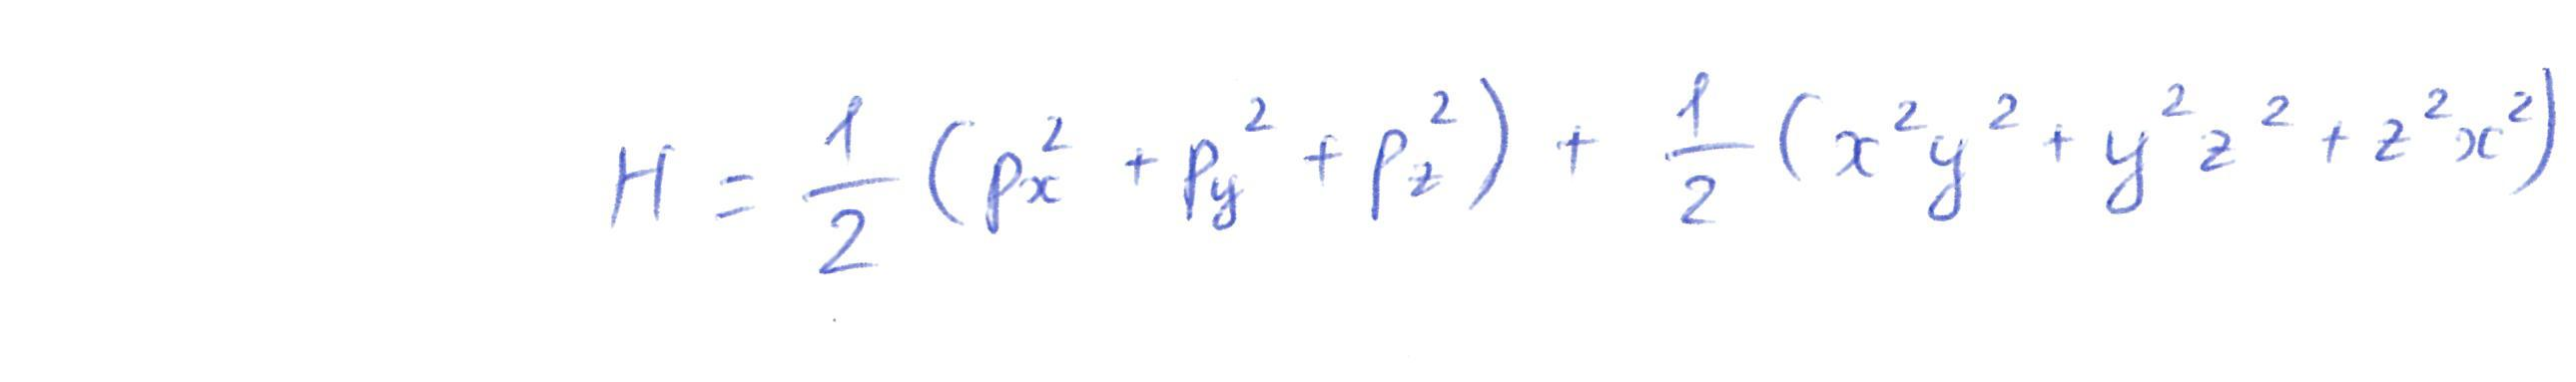 H = \frac{1}{2} (p_x^2 + p_y^2 + p_z^2) + \frac{1}{2} (x^2 y^2 + y^2 z^2 + z^2 x^2)